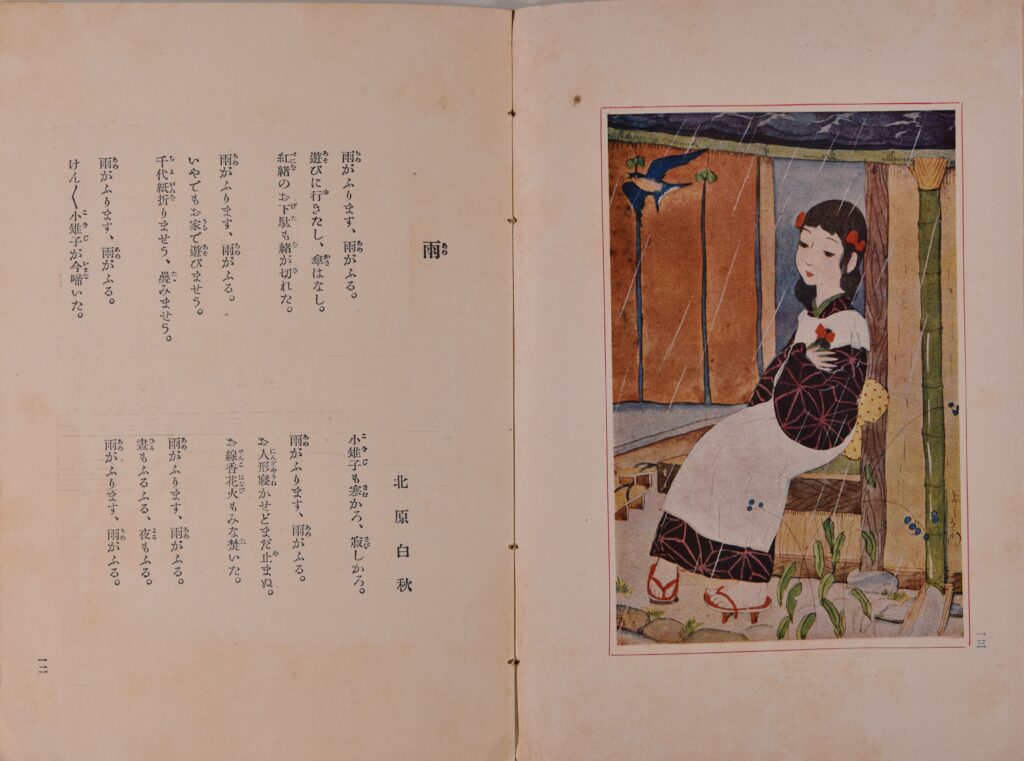 雨
北原白秋
雨がふります、雨がふる。
遊びに行きたし、傘はなし。
紅緒のお下駄も緒が切れた。
雨がふります、雨がふる。
いやでもお家で遊びませう。
千代紙折りませう、疊みませう。
雨がふります、雨がふる。
けん〳〵小雉子が今啼いた。
小雉子も寒かろ、寂しかろ。
雨がふります、雨がふる。
お人形寢かせどまだ止まぬ。
お線香花火もみな焚いた。
雨がふります、雨がふる。
晝もふるふる、夜もふる。
雨がふります、雨がふる。
一二
一三